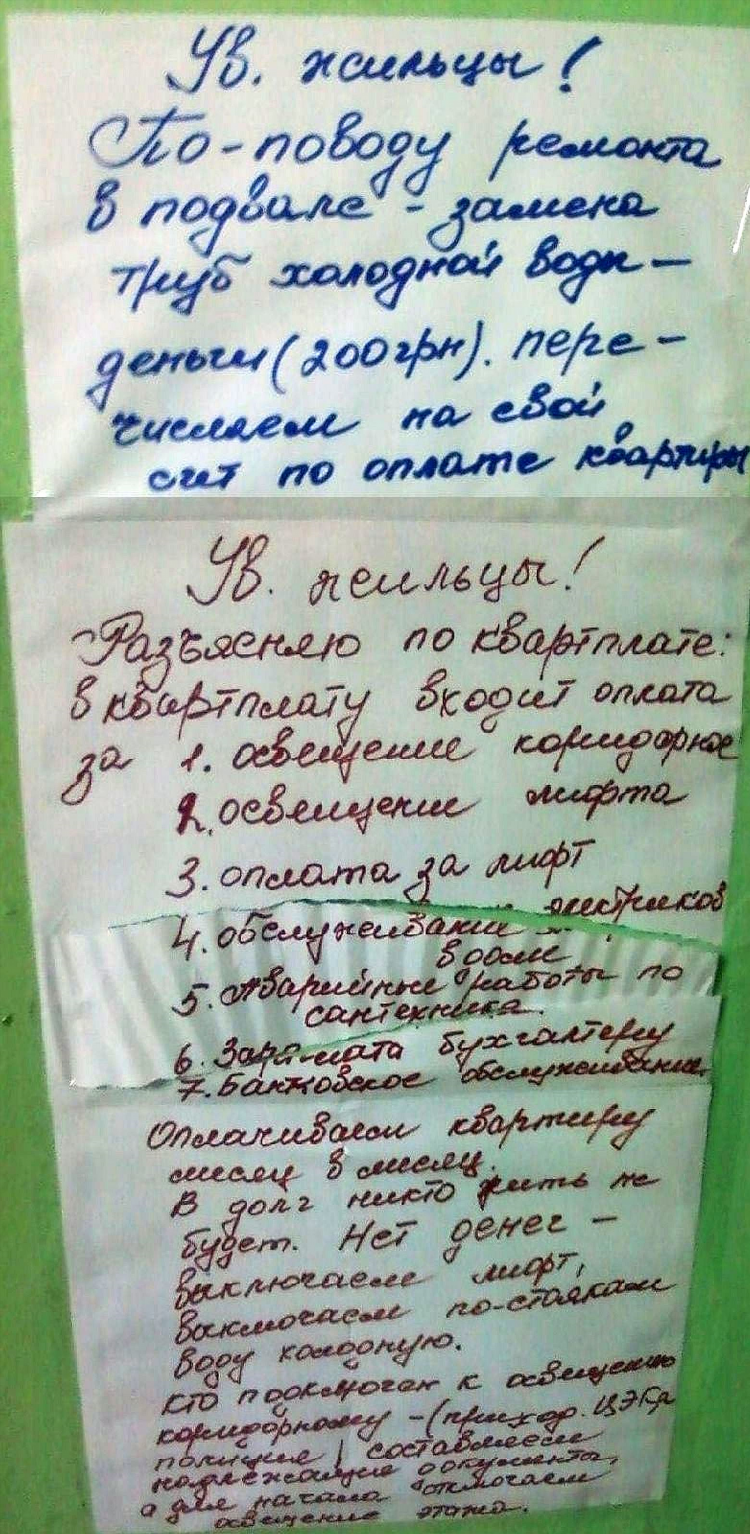 Ув. жильцы!
По-поводу ремонта
в подвале - замена
труб холодной воды -
деньги (200грн). пере-
числяем на свой
счет по оплате квартиры
Ув. жильцы!
Разъясняю по квартплате:
в квартплату входит оплата
за 1. освещение коридорное
2. освещение лифта
3. оплата за лифт
4. обслуживание электриков
в доме
5. Аварийные работы по
сантехнике.
6. Зарплата бухгалтеру
7. Банковское обслуживание.
Оплачиваем квартиру
месяц в месяц.
В долг никто жить не
будет. Нет денег -
выключаем лифт,
выключаем по-стоякам
воду холодную.
кто подключен к освещению
коридорному - (приход. ЦЭК,
полиция) составляем
надлежащие документы,
а для начала отключаем
освещение этажа.